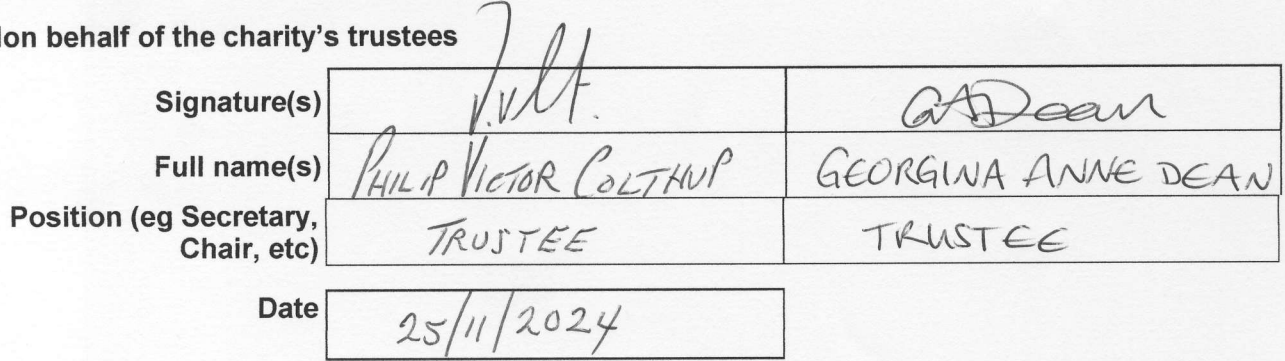 on behalf of the charity's trustees
Signature(s) GADean
Full name(s) PHILIP VICTOR COLTHUP GEORGINA ANNE DEAN
Position (eg Secretary, TRUSTEE TRUSTEE
Chair, etc)
Date 25/11/2024